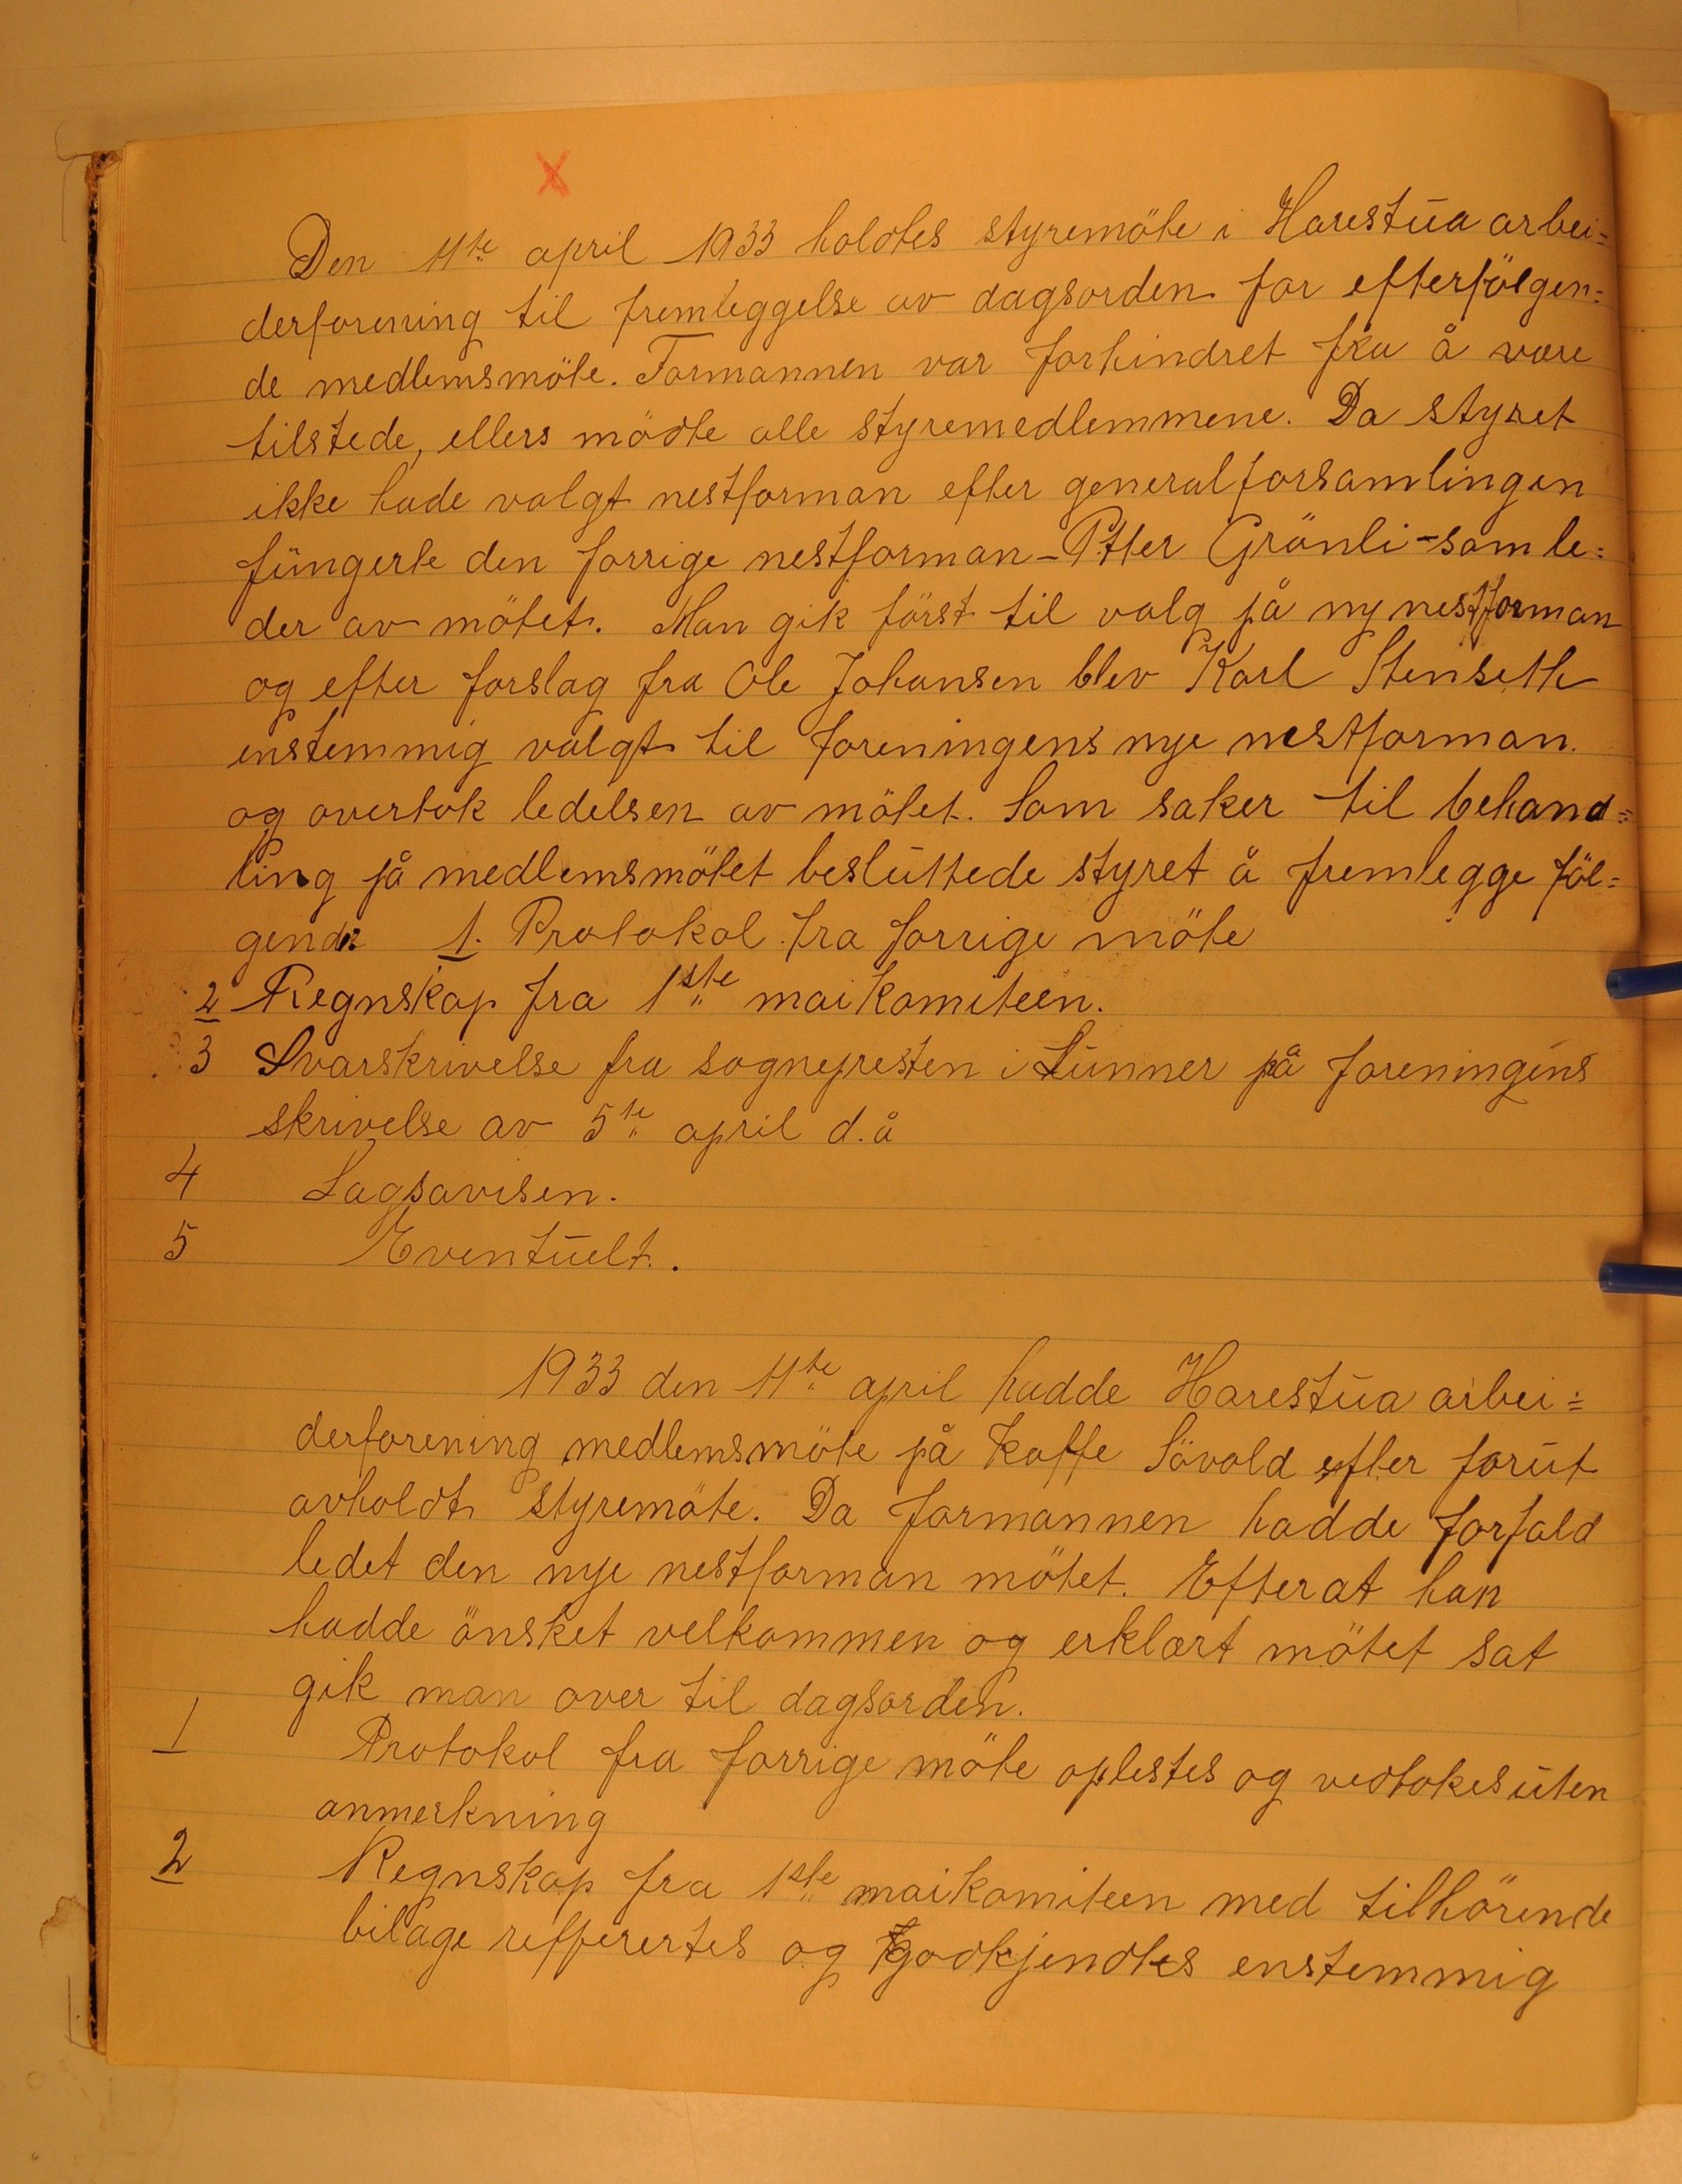 Den 11te april 1933 holdtes styremöte i Harestua arbei=
derforening til fremleggelse av dagsorden for efterfölgen=
de medlemsmöte. Formannen var forhindret fra å være
tilstede, ellers mödte alle styremedlemmene. Da styret
ikke hade valgt nestforman efter generalforsamlingen
fungerte den forrige nestforman - Petter Grönli - som le=
der av mötet. Man gik först til valg på ny nestforman
og efter forslag fra Ole Johansen blev Karl Stenseth
enstemmig valgt til foreningens nye nestforman.
og overtok ledelsen av mötet. Som saker til behand=
ling på medlemsmötet besluttede styret å fremlegge föl=
gende 1. Protokol fra forrige möte
2 Regnskap fra 1ste maikomiteen.
3 Svarskrivelse fra sognepresten i Lunner på foreningens
skrivelse av 5te april d.å
4 Lagsavisen.
5 Eventuelt.
1933 den 11te april hadde Harestua arbei=
derforening medlemsmöte på kaffe Sövold efter forut
avholdt styremöte. Da formannen hadde forfald
ledet den nye nestforman mötet. Efter at han
hadde önsket velkommen og erklært mötet sat
gik man over til dagsorden.
1 Protokol fra forrige möte oplestes og vedtokes uten
anmerkning
2 Regnskap fra 1ste maikomiteen med tilhörende
bilage refferertes og godkjendtes enstemmig